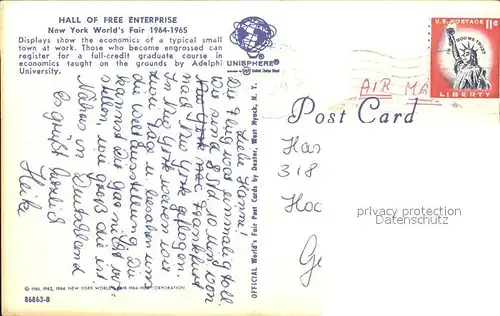 HALL OF FREE ENTERPRISE
New York World's Fair 1964-1965
Displays show the economics of a typical small
town at work. Those who become engrossed can
register for a full-credit graduate course in
economics taught on the grounds by Adelphi
University.
UNISPHERE®
presented by United States Steel
Liebe Hanni!
Der Flug war einmalig toll.
Wir sind 8 Std 10 Min von
New York nach Frankfurt
nach New York geflogen.
In New York waren wir
einen Tag u. besahen uns
die Weltausstellung. Du
kannst Dir gar nicht vor-
stellen wie groß die ist.
Näheres in Deutschland
Es grüßt herzlich
Heike
© 1961, 1963, 1964 NEW YORK WORLD'S FAIR 1964-1965 CORPORATION
86863-B
OFFICIAL World's Fair Post Cards by Dexter, West Nyack, N. Y.
U.S. POSTAGE 11¢
IN GOD WE TRUST
LIBERTY
AIR MA
Post Card
Han
318
Hoc
Ge
privacy protection
Datenschutz